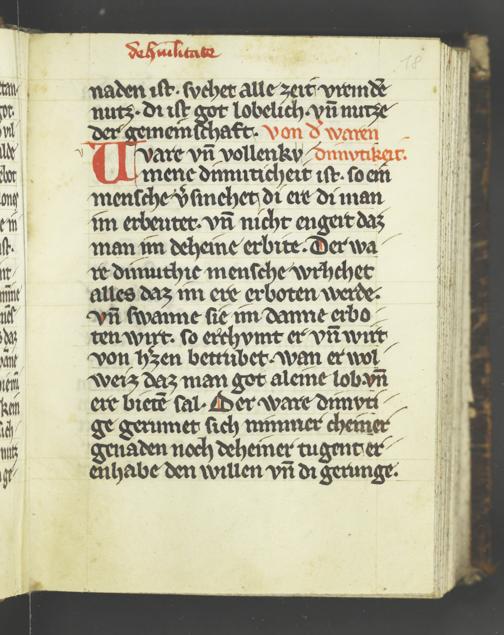 de humilitate
18
naden ist. suchet alle zeit vremde
nutz. di ist got lobelich. vn̄ nutze
der gemeinschaft. von d' waren
Uvare vn̄ vollenku dimutikeit.
mene dimuticheit ist. so ein
mensche v'sinchet di ere di man
im erbeutet. vn̄ nicht engert daz
man im deheine erbite. Der wa
re dimuthie mensche vurhchet
alles daz im ere erboten werde.
vn̄ swanne sie im danne erbo
ten wirt. so erchumt er vn̄ wirt
von h'zen betrubet. wan er wol
weiz daz man got aleine lob vn̄
ere bieten sal. Der ware dimuti
ge gerumet sich nimmer cheiner
genaden noch deheiner tugent er
enhabe den willen vn̄ di gerunge.